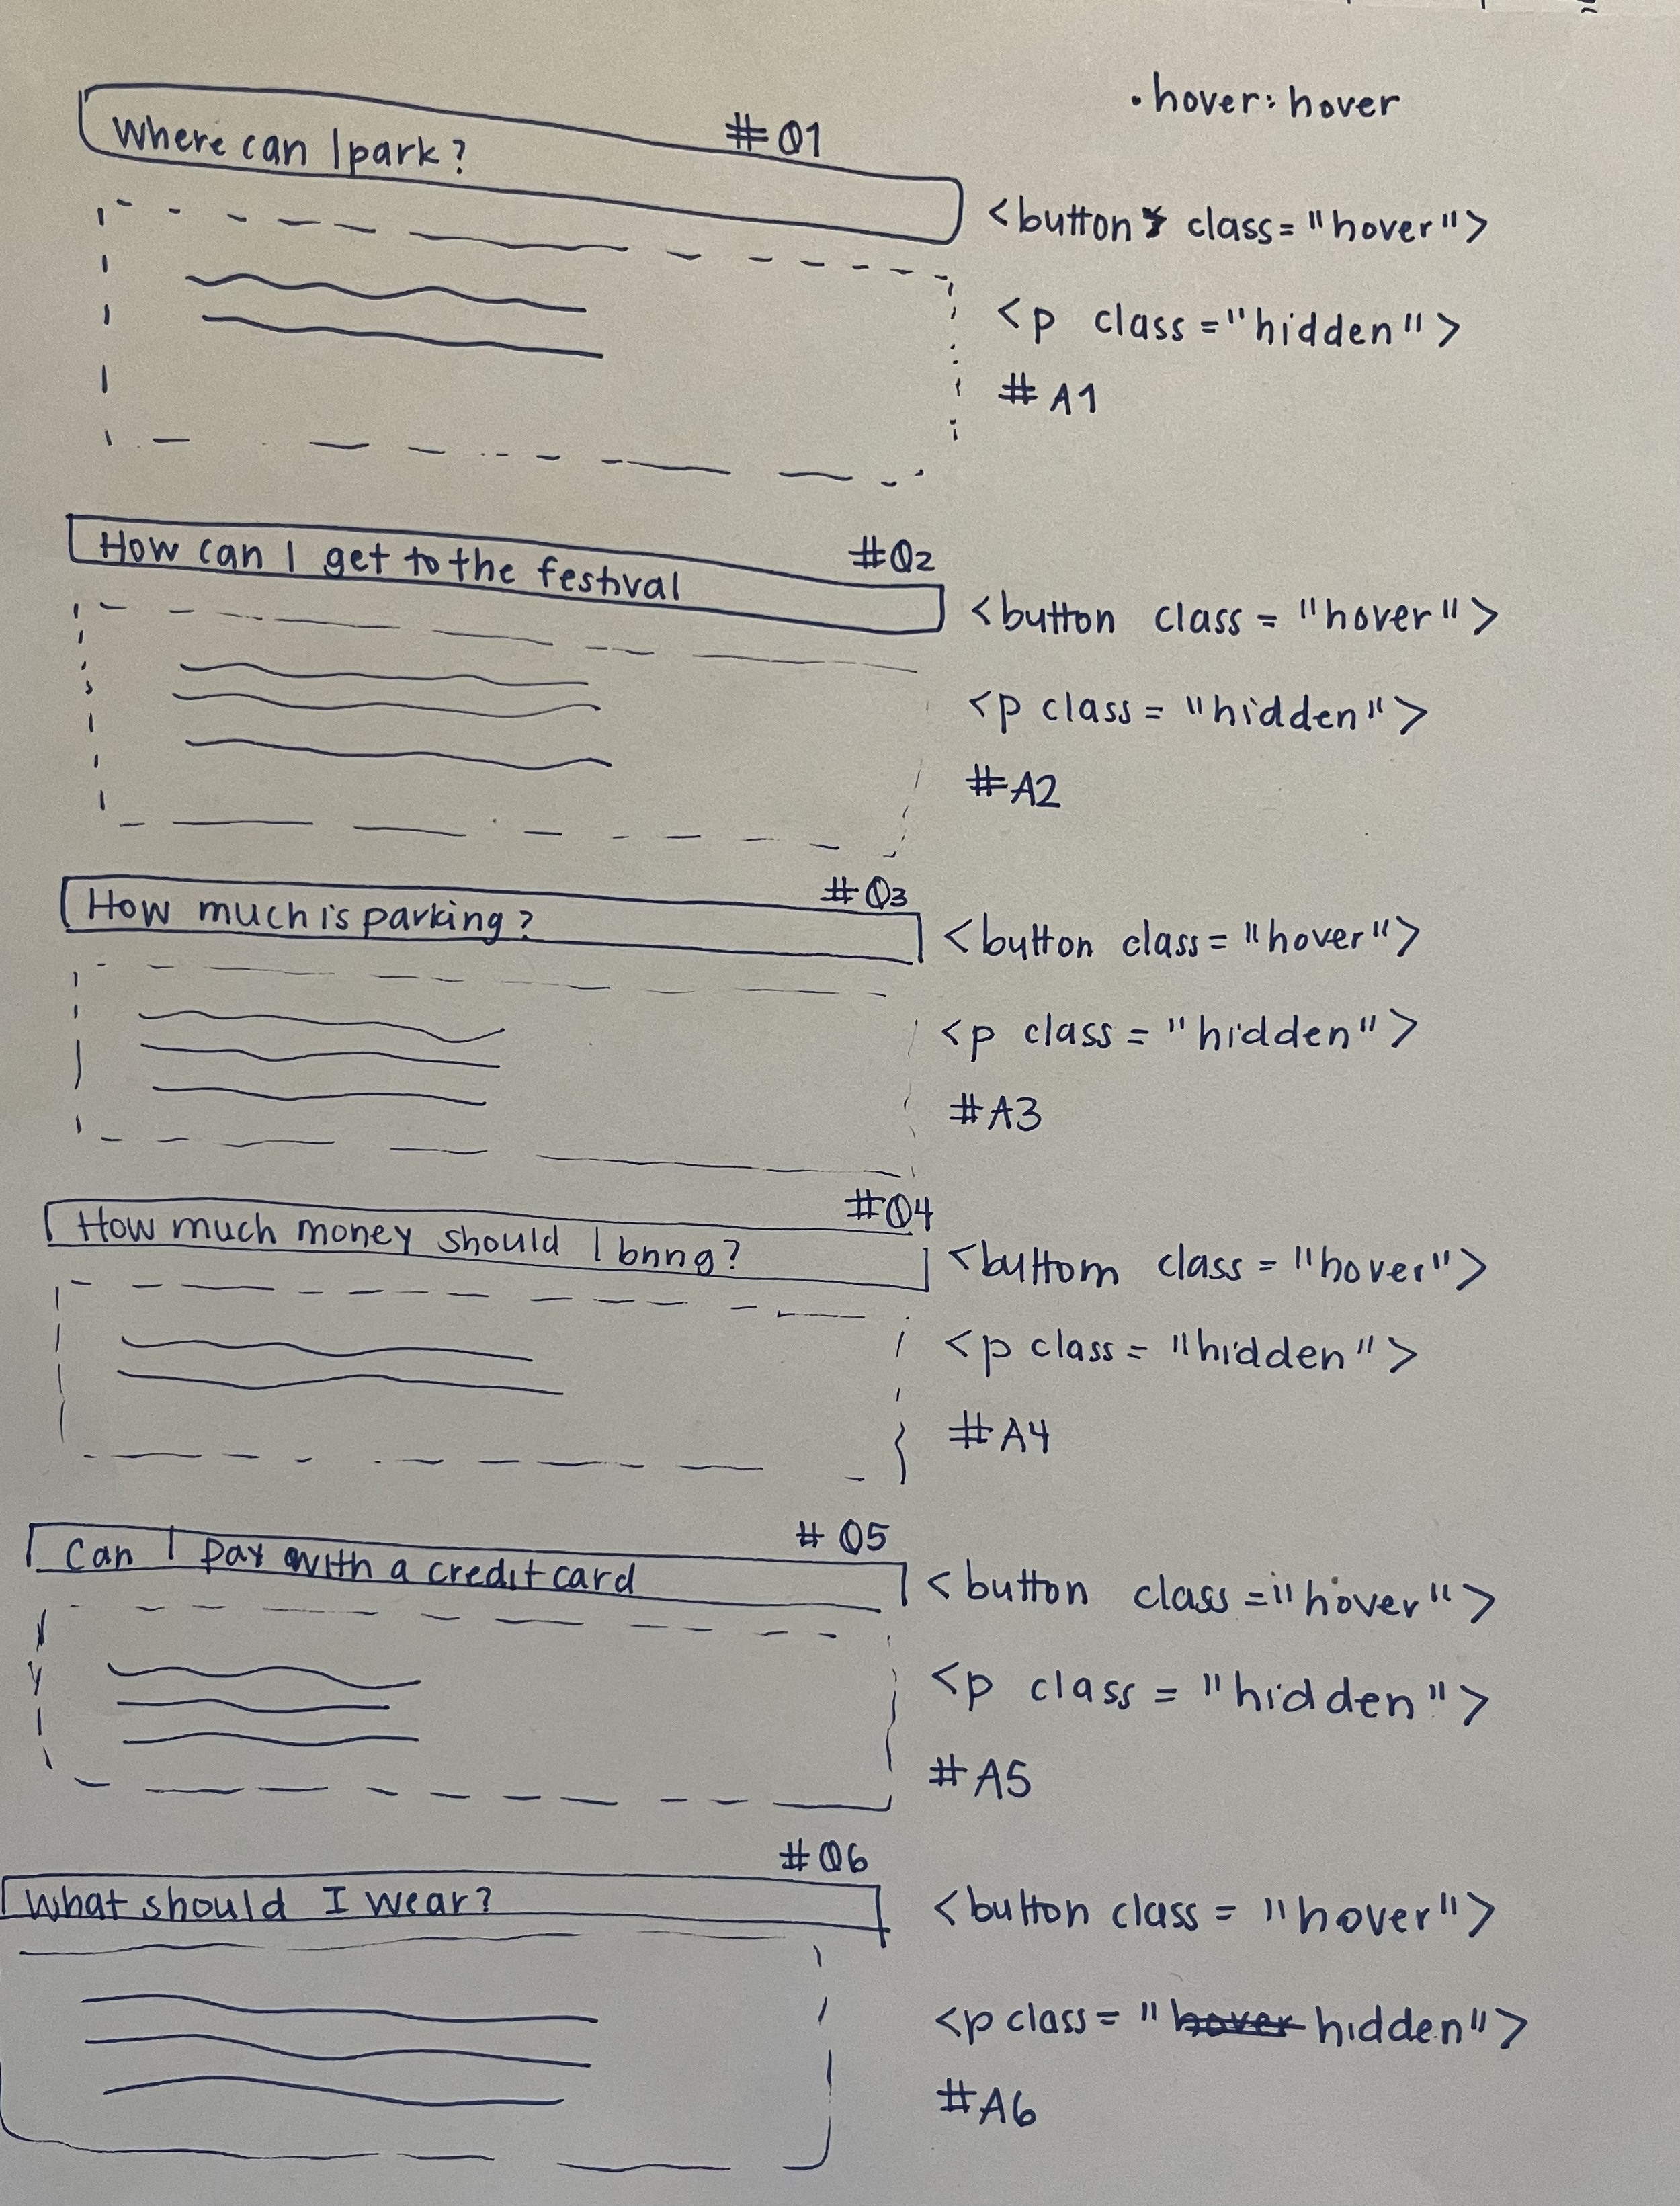 .hover:hover
Where can I park?
#Q1
<button class="hover">
<p class="hidden">
#A1
How can I get to the festival
#Q2
<button class="hover">
<p class="hidden">
#A2
How much is parking?
#Q3
<button class="hover">
<p class="hidden">
#A3
How much money should I bring?
#Q4
<buttom class="hover">
<p class="hidden">
#A4
Can I pay with a credit card
#Q5
<button class="hover">
<p class="hidden">
#A5
What should I wear?
#Q6
<button class="hover">
<p class="hover hidden">
#A6